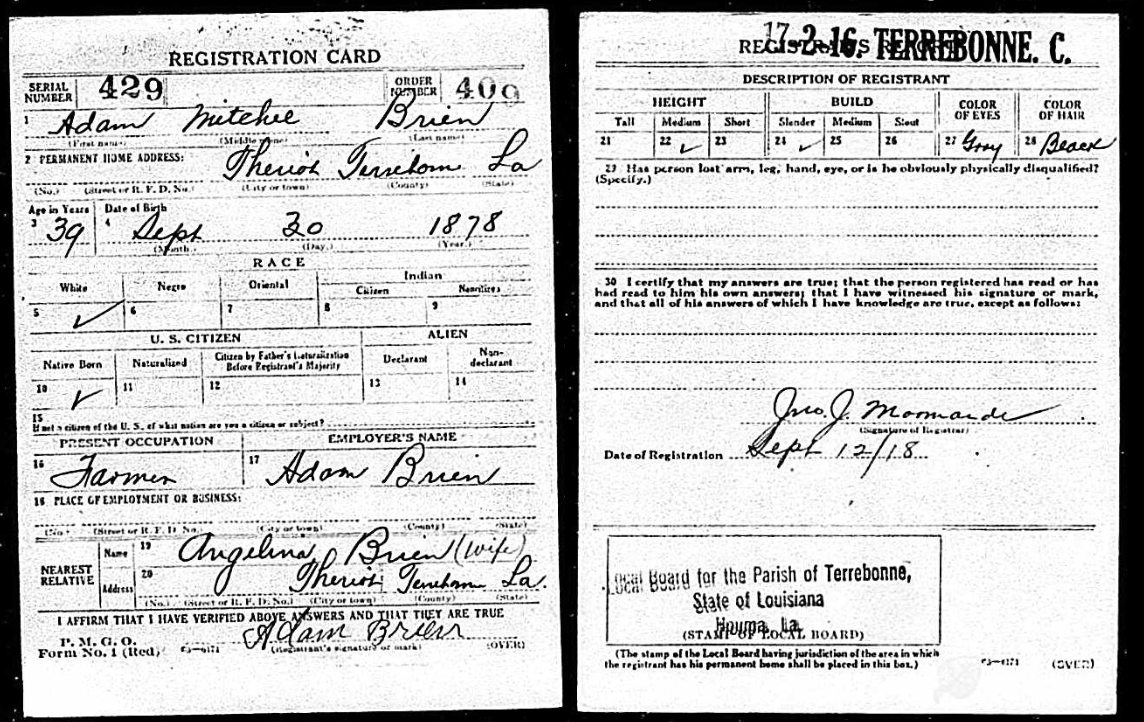 REGISTRATION CARD
SERIAL NUMBER 429 ORDER NUMBER 409
1 Adam Mitchel Brien
(First name) (Middle name) (Last name)
2 PERMANENT HOME ADDRESS:
Theriot Terrebonne La
(No.) (Street or R. F. D. No.) (City or town) (County) (State)
Age in Years Date of Birth
3 39 4 Sept 20 1878
(Month.) (Day.) (Year.)
RACE
White Negro Oriental Indian
Citizen Noncitizen
5 ✓ 6 7 8 9
U. S. CITIZEN ALIEN
Native Born Naturalized Citizen by Father's Naturalization Before Registrant's Majority Declarant Non-declarant
10 ✓ 11 12 13 14
15
If not a citizen of the U. S., of what nation are you a citizen or subject?
PRESENT OCCUPATION EMPLOYER'S NAME
16 Farmer 17 Adam Brien
18 PLACE OF EMPLOYMENT OR BUSINESS:
(No.) (Street or R. F. D. No.) (City or town) (County) (State)
NEAREST RELATIVE
Name 19 Angelina Brien (wife)
Address 20 Theriot Terrebonne La.
(No.) (Street or R. F. D. No.) (City or town) (County) (State)
I AFFIRM THAT I HAVE VERIFIED ABOVE ANSWERS AND THAT THEY ARE TRUE
P. M. G. O.
Form No. 1 (Red) Adam Brien
(Registrant's signature or mark) (OVER)
17-2-16. TERREBONNE. C.
REGISTRAR'S REPORT
DESCRIPTION OF REGISTRANT
HEIGHT BUILD COLOR OF EYES COLOR OF HAIR
Tall Medium Short Slender Medium Stout
21 22 ✓ 23 24 ✓ 25 26 27 Gray 28 Black
29 Has person lost arm, leg, hand, eye, or is he obviously physically disqualified?
(Specify.)
30 I certify that my answers are true; that the person registered has read or has
had read to him his own answers; that I have witnessed his signature or mark,
and that all of his answers of which I have knowledge are true, except as follows:
Jno. J.
(Signature of Registrar)
Date of Registration Sept 12/18
Local Board for the Parish of Terrebonne,
State of Louisiana
Houma, La.
(STAMP OF LOCAL BOARD)
(The stamp of the Local Board having jurisdiction of the area in which
the registrant has his permanent home shall be placed in this box.)
(OVER)